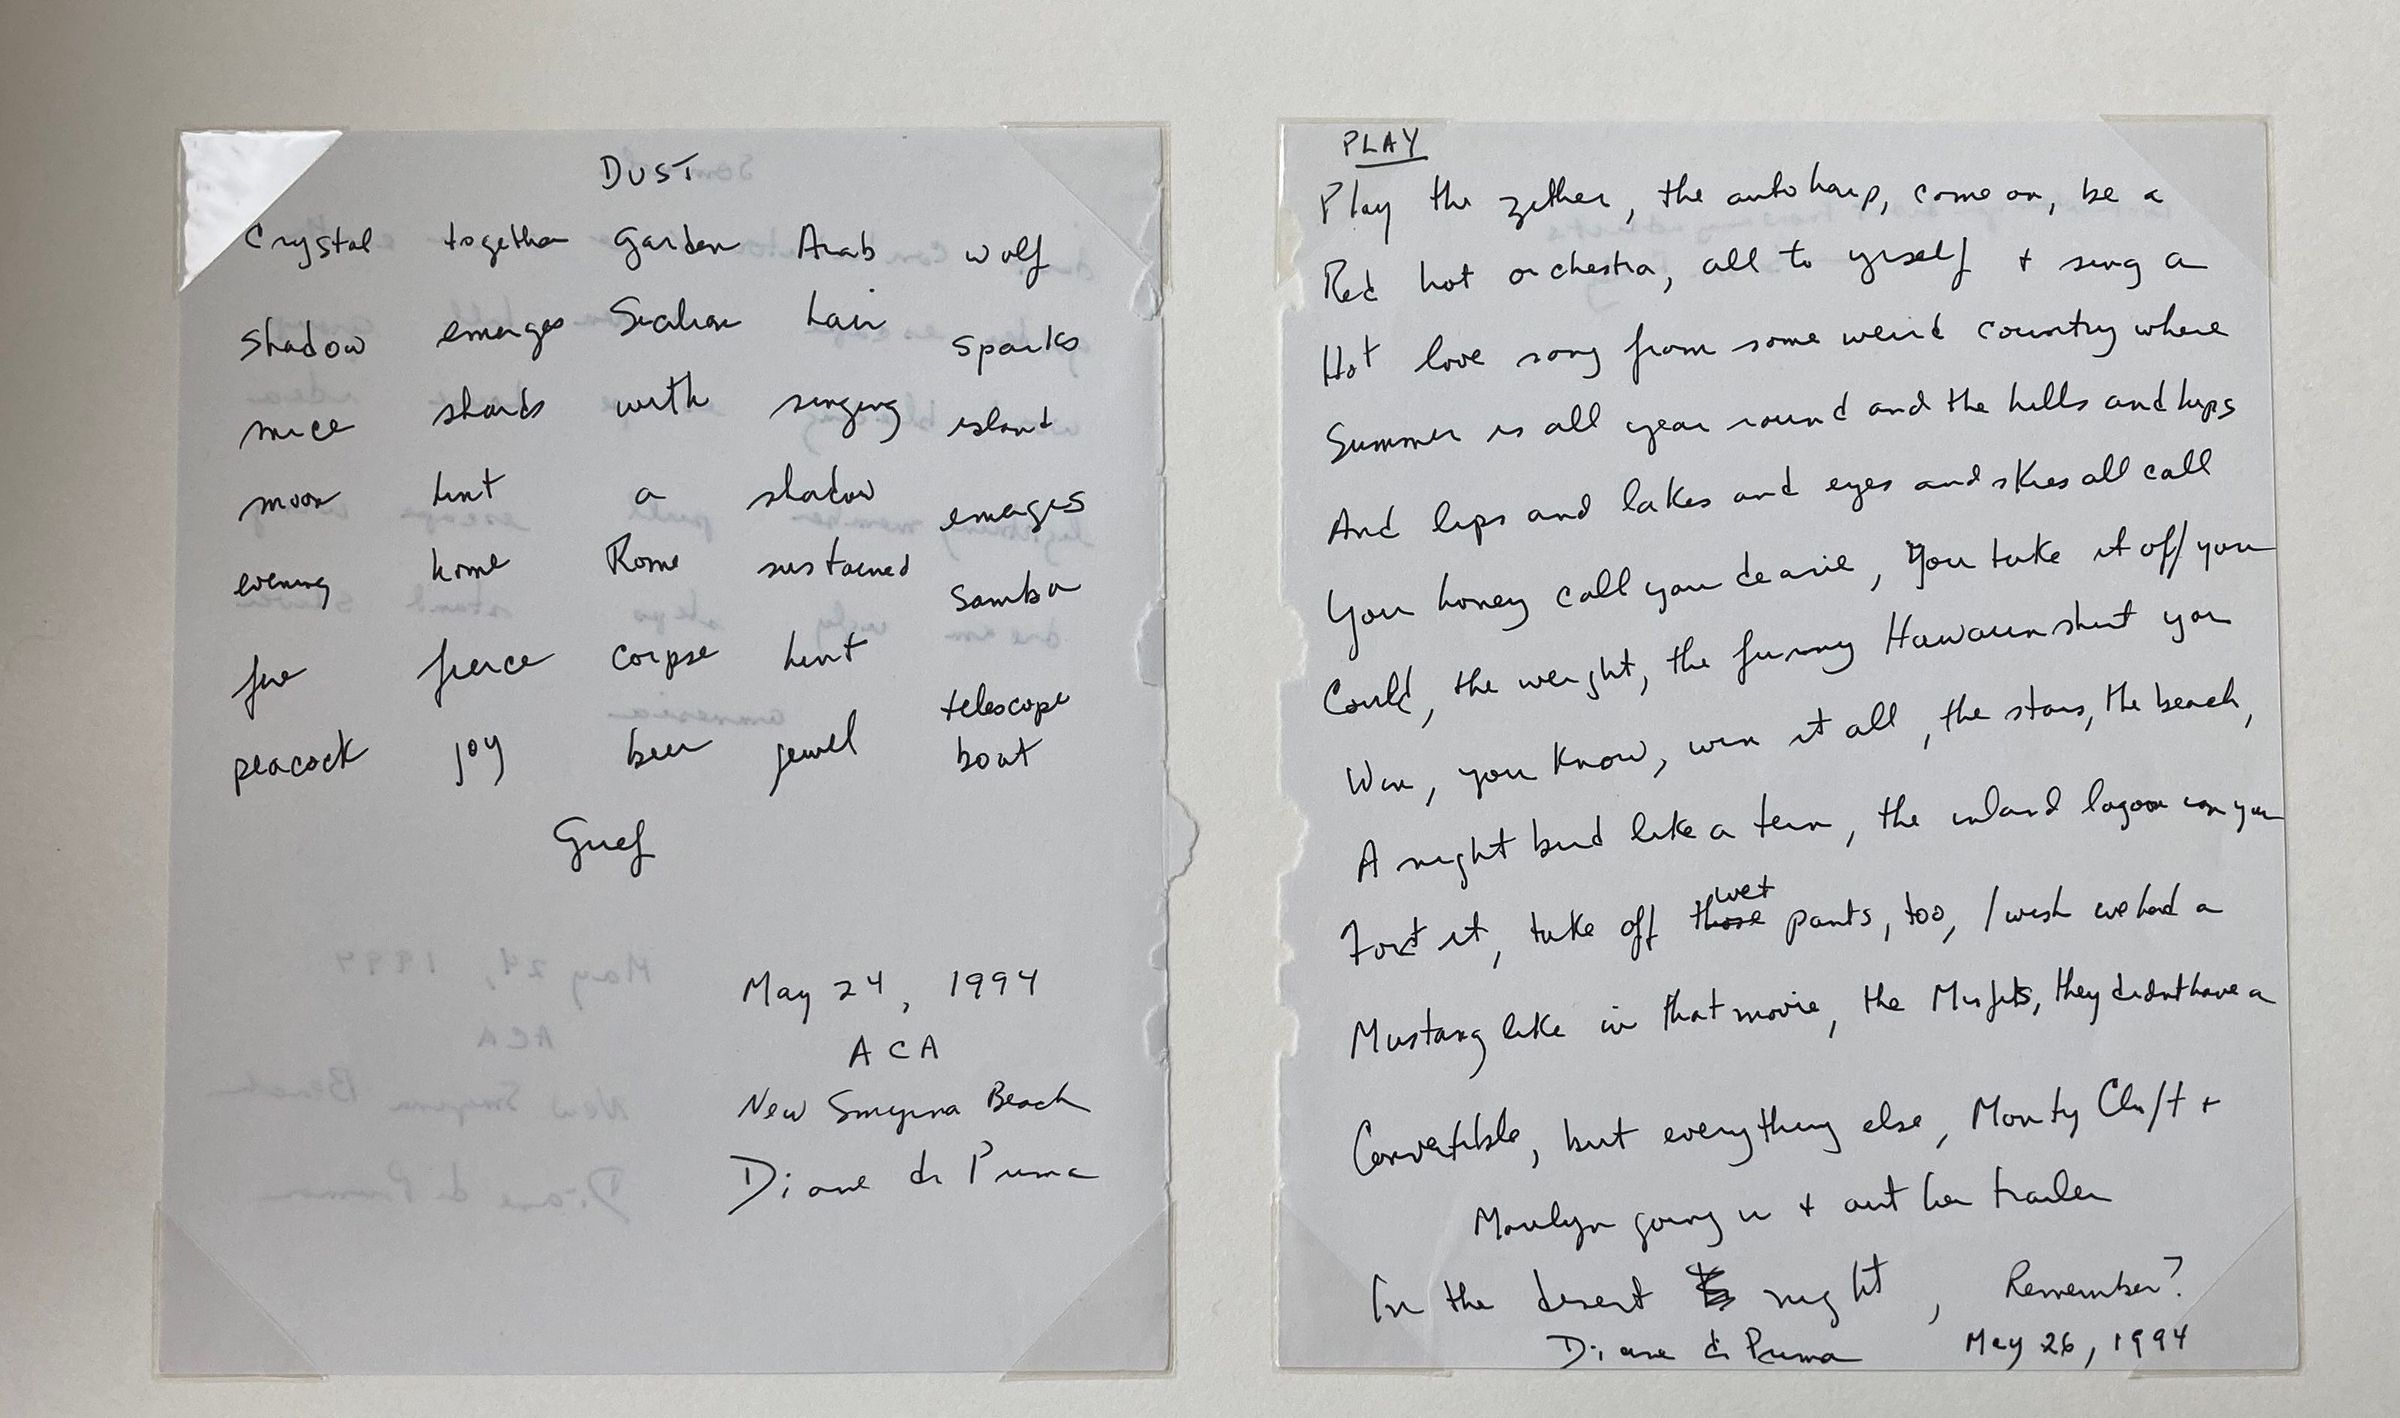 DUST
Crystal together garden Arab wolf
shadow emerges Sicilian hair sparks
mice shards with singing island
moon hint a shadow emerges
evening home Rome sustained samba
fire fierce corpse hint telescope
peacock joy beer jewel boat
Grief
May 24, 1994
ACA
New Smyrna Beach
Diane di Prima
PLAY
Play the zither, the autoharp, come on, be a
Red hot orchestra, all to yrself + sing a
Hot love song from some weird country where
Summer is all year round and the hills and hips
And lips and lakes and eyes and skies all call
You honey call you dearie, you take it off you
Could, the weight, the funny Hawaiian shirt you
Win, you know, win it all, the stars, the beach,
A night bird like a tern, the inland lagoon can you
it, take off those wet pants, too, I wish we had a
Mustang like in that movie, the Misfits, they didn't have a
Convertible, but everything else, Monty Clift +
Marilyn going in + out her trailer
In the desert night, Remember?
Diane di Prima May 26, 1994